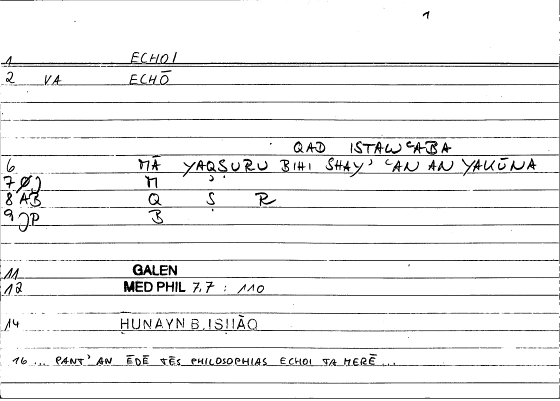 1
1 ECHOI
2 VA ECHŌ
QAD ISTAWʿABA
6 MĀ YAQṢURU BIHI SHAYʾ ʿAN AN YAKŪNA
7 M
8 AB Q Ṣ R
9 JP B
11 GALEN
12 MED PHIL 7,7 : 110
14 ḤUNAYN B. ISḤĀQ
16 ... PANT' AN ĒDĒ TĒS PHILOSOPHIAS ECHOI TA MERĒ ...